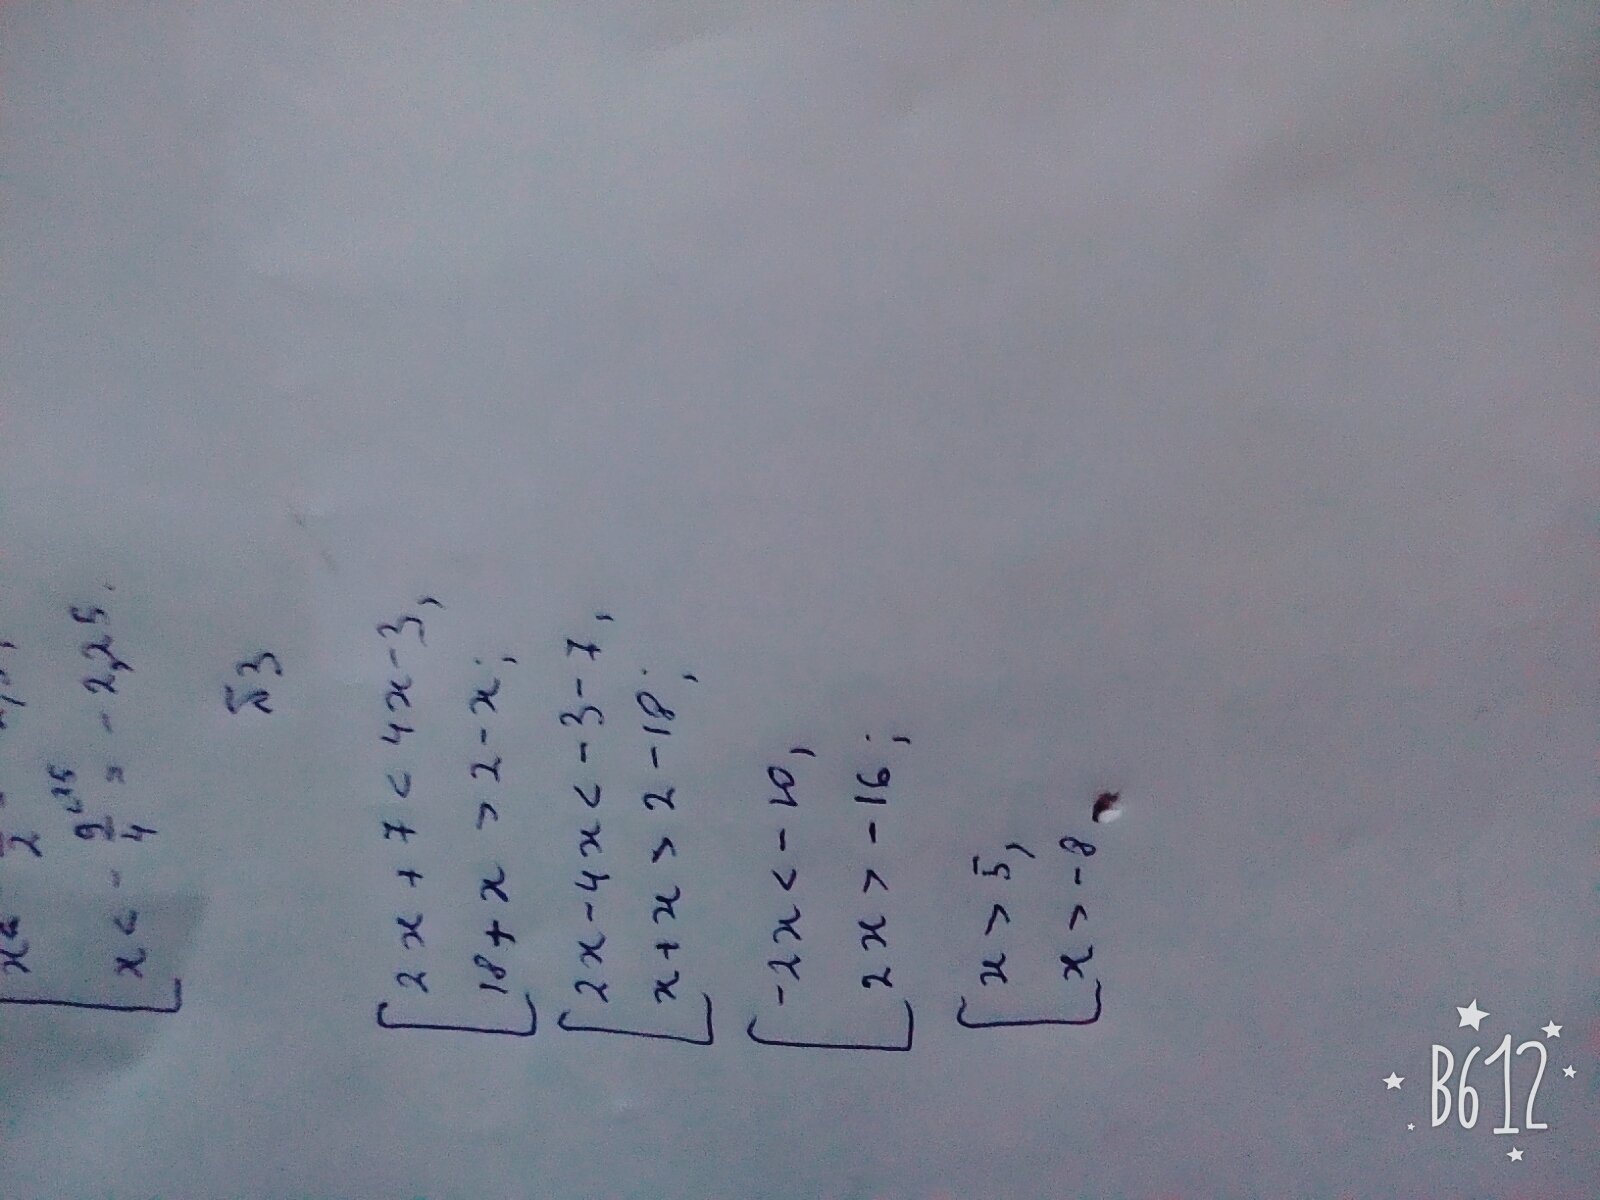 x < - 9/4 = - 2,25.
№3
[ 2x + 7 < 4x - 3,
18 + x > 2 - x;
[ 2x - 4x < - 3 - 7,
x + x > 2 - 18;
[ - 2x < - 10,
2x > - 16;
[ x > 5,
x > - 8
B612